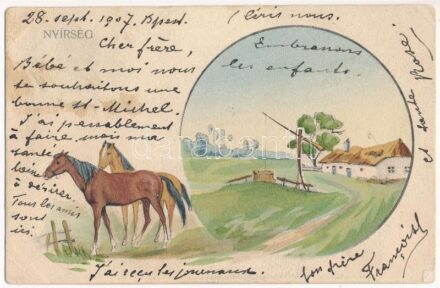 28. sept. 1907. Bpest.
NYÍRSÉG
Cher frère,
Bébé et moi nous
te souhaitons une
bonne St-Michel.
J'ai passablement
à faire, mais ma
santé
laisse
à désirer.
Tous les amis
sont
ici.
J'ai reçu les journaux.
(Ecris nous.
Embrassons
les enfants.
et tante Rose!
ton frère
François